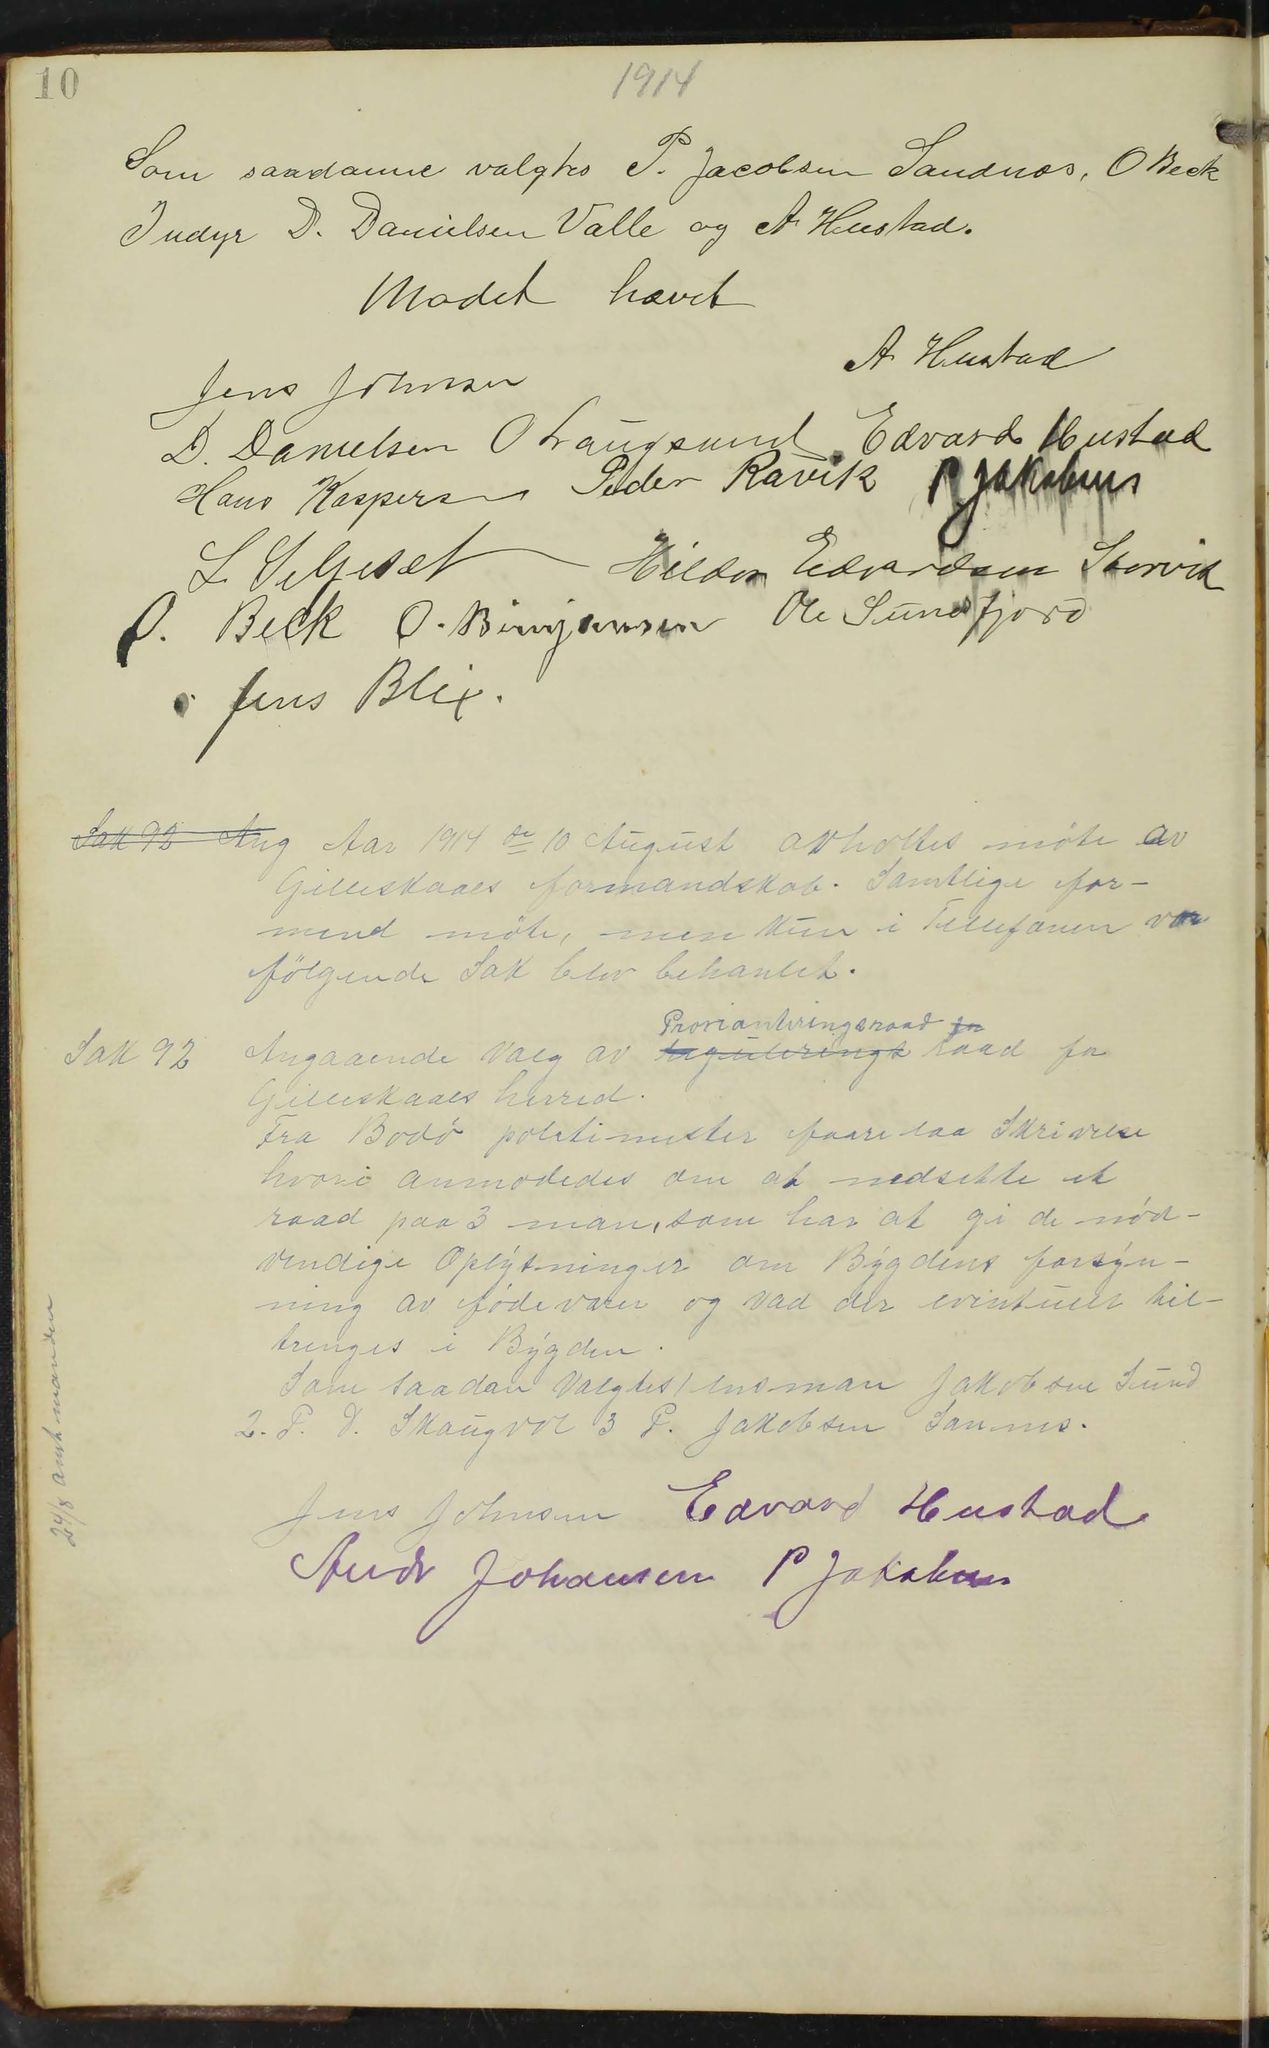 10
1914
Som saadanne valgtes P. Jacobsen Sandnes, O Beck
Indyr D. Danielsen Valle og A Hustad.
Mødet hævet
A Hustad
Jens Johnsen
D. Danielsen O Langsund Edvard Hustad
Hans Kaspersen Peder Råvik P Jakobsen
L Seljeset Hildor Edvardsen Storvik
O. Beck O. Binjamsen Ole Sundsfjord
Jens Blix.
Sak 92 Aug Aar 1914 de 10 August avholtes møte av
Gilleskaals formandskab. Samtlige for-
mend møte, men kun i Tellefonen var
følgende Sak blev behanlet.
Proviantiringsraad for
Sak 92 Angaaende Valg av regulerings raad for
Gilleskaals herred.
Fra Bodö politimester foorelaa Skrivelse
hvori anmodedes om at nedsette et
raad paa 3 man, som har at gi de nød-
vendige Oplysninger om Bygdens forsyn-
ning av fødevarer og vad der eventuelt til-
trenges i Bygden.
Som saadan Valgtes 1 lensman Jakobsen Sund
2. P. D. Skaugvol 3 P. Jakobsen Sannes.
24/8 amtmanden
Jens Johnsen Edvard Hustad
Andr Johansen P Jakobsen